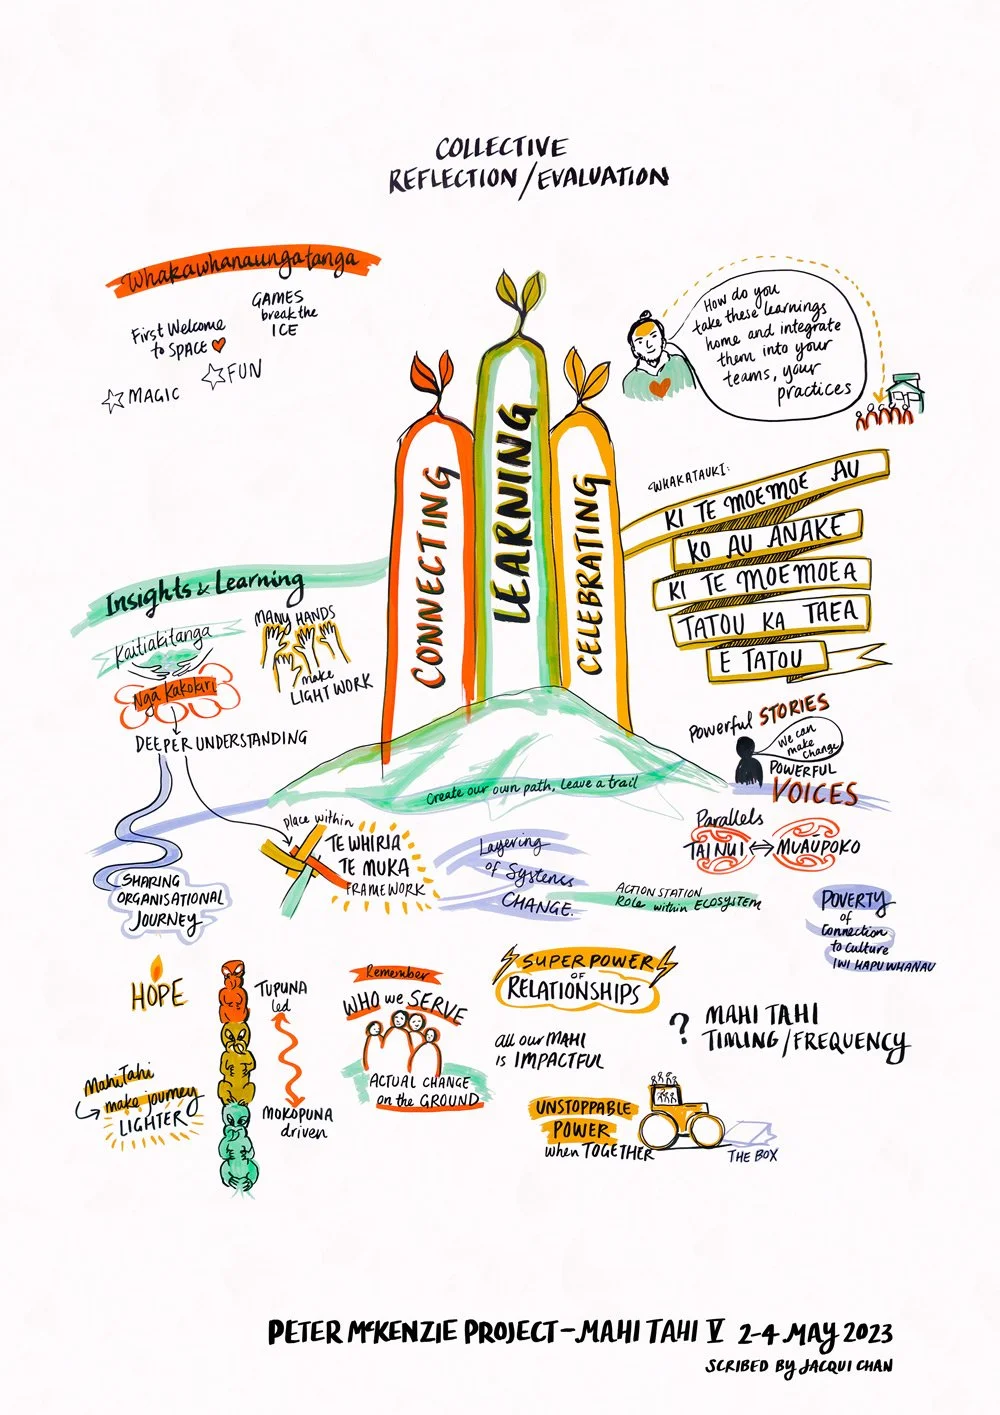 COLLECTIVE
REFLECTION/EVALUATION
Whakawhanaungatanga
GAMES
break the
ICE
First Welcome
to SPACE
FUN
MAGIC
How do you
take these learnings
home and integrate
them into your
teams, your
practices
CONNECTING
LEARNING
CELEBRATING
WHAKATAUKI:
KI TE MOEMOE AU
KO AU ANAKE
KI TE MOEMOEA
TATOU KA TAEA
E TATOU
Insights & Learning
Kaitiakitanga
Ngā Kakolari
DEEPER UNDERSTANDING
MANY HANDS
make
LIGHT WORK
Create our own path, Leave a trail
Powerful STORIES
We can
make
Change
POWERFUL
VOICES
Parallels
TAINUI MUAŪPOKO
place within
TE WHIRIA
TE MUKA
FRAMEWORK
Layering
of Systems
CHANGE
ACTION STATION
Role within ECOSYSTEM
SHARING
ORGANISATIONAL
JOURNEY
POVERTY
of
Connection
to Culture
IWI HAPU WHANAU
HOPE
TUPUNA
led
MOKOPUNA
driven
Mahi Tahi
make journey
LIGHTER
Remember
WHO we SERVE
ACTUAL CHANGE
on the GROUND
SUPERPOWER
OF
RELATIONSHIPS
all our MAHI
is IMPACTFUL
? MAHI TAHI
TIMING/FREQUENCY
UNSTOPPABLE
POWER
when TOGETHER
THE BOX
PETER McKENZIE PROJECT - MAHI TAHI V 2-4 MAY 2023
SCRIBED BY JACQUI CHAN